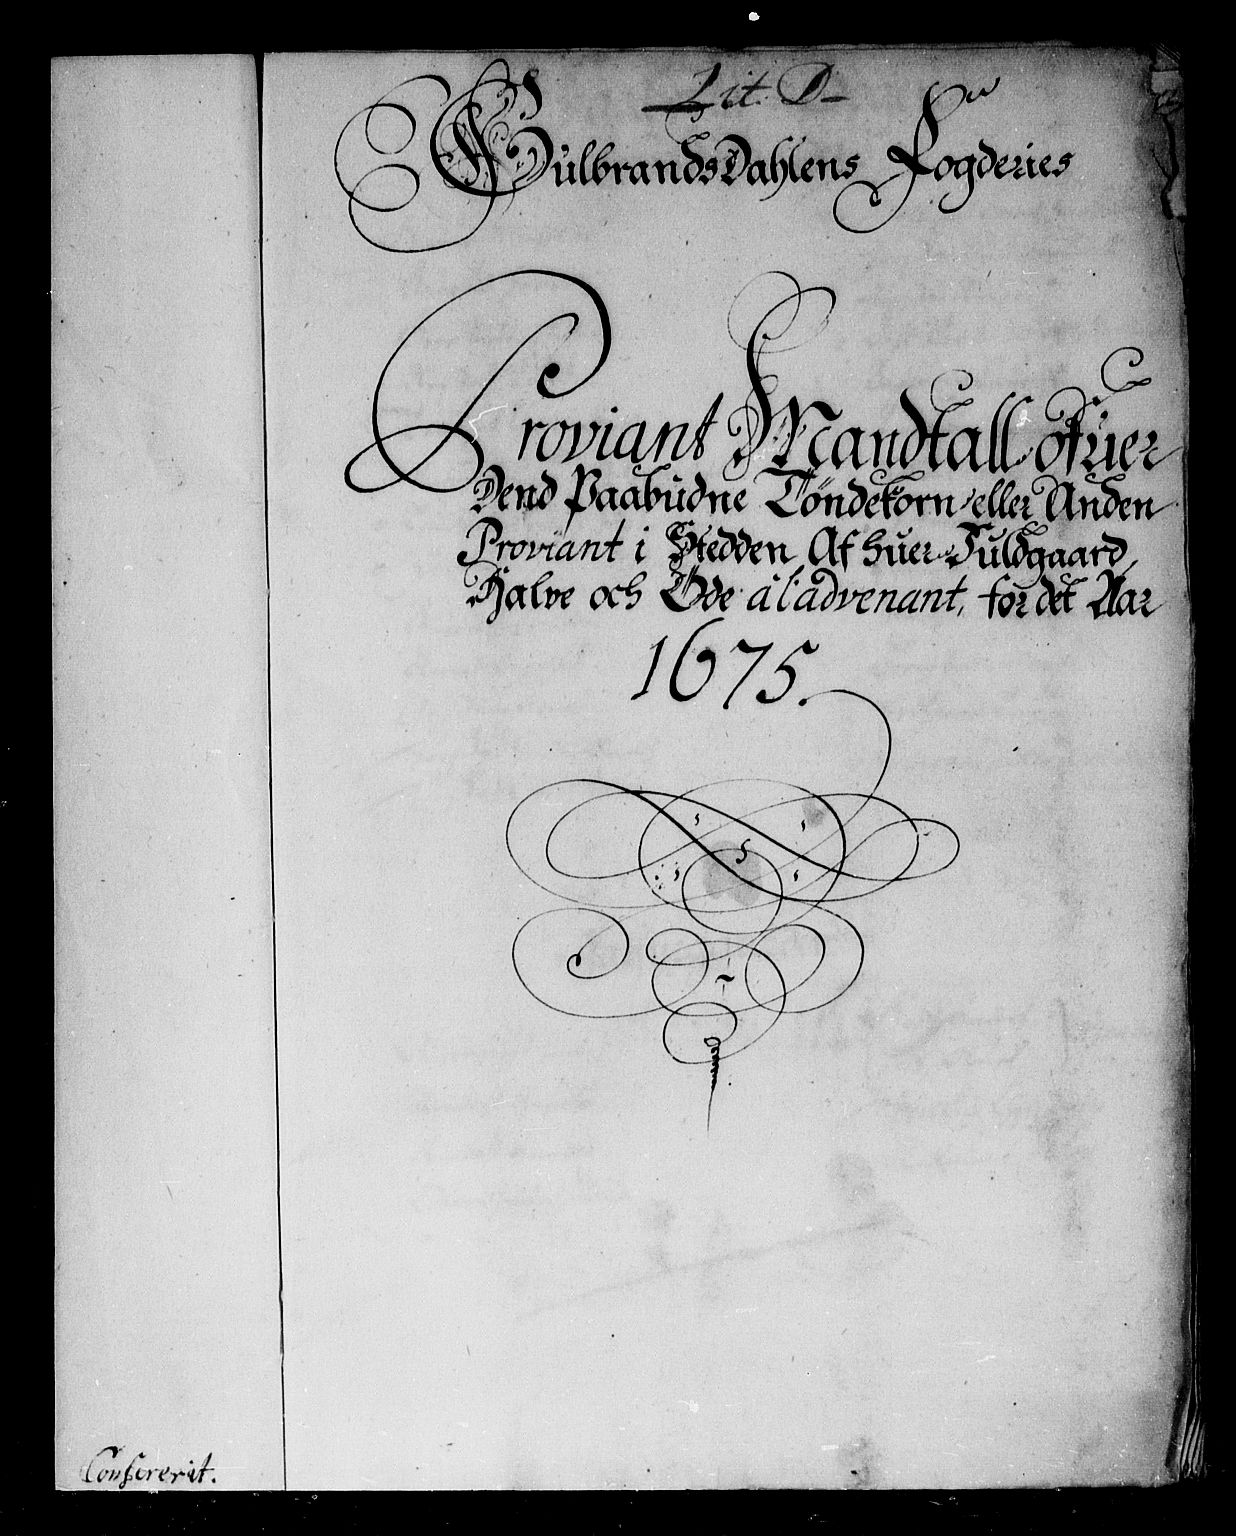 Lit. D
GulbrandsDahlens Fogderies
Proviant Mandtall ofuer
Dend Paabudne Töndekorn eller Anden
Proviant i Stedden Af huer Fuldgaard,
Halve och Öde a l'advenant, for det Aar
1675.